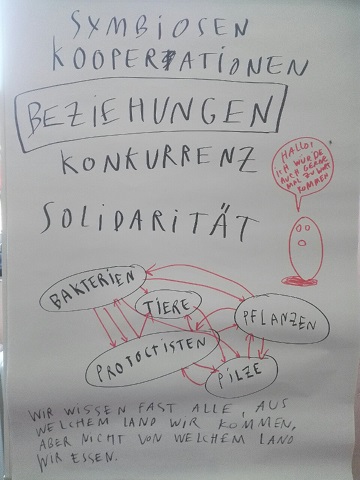 SYMBIOSEN
KOOPERATIONEN
BEZIEHUNGEN
KONKURRENZ
HALLO!
ICH WÜRDE
AUCH GERNE
MAL ZU WORT
KOMMEN
SOLIDARITÄT
BAKTERIEN
TIERE
PFLANZEN
PROTOCTISTEN
PILZE
WIR WISSEN FAST ALLE, AUS
WELCHEM LAND WIR KOMMEN,
ABER NICHT VON WELCHEM LAND
WIR ESSEN.